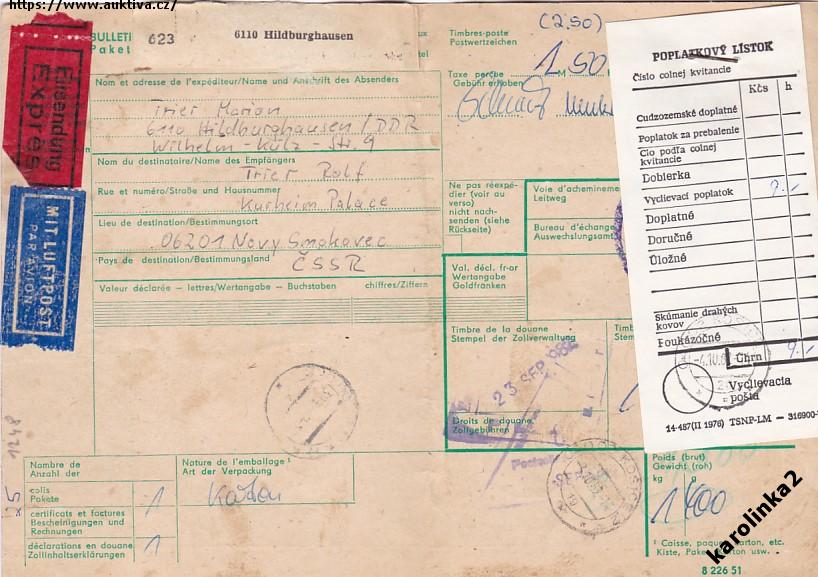 https://www.auktiva.cz/
BULLETI
Paket
623
6110 Hildburghausen
Timbres-poste
Postwertzeichen
(2,50)
1,50
Taxe perçue
Gebühr erhoben
M
Eilsendung
Exprès
MIT LUFTPOST
PAR AVION
Nom et adresse de l'expéditeur/Name und Anschrift des Absenders
Trier Marion
6110 Hildburghausen / DDR
Wilhelm-Külz-Str. 9
Nom du destinataire/Name des Empfängers
Trier Rolf
Rue et numéro/Straße und Hausnummer
Kurheim Palace
Lieu de destination/Bestimmungsort
06201 Novy Smokovec
Pays de destination/Bestimmungsland
ČSSR
Valeur déclarée - lettres/Wertangabe - Buchstaben
chiffres/Ziffern
Ne pas réexpé-
dier (voir
au verso)
nicht nach-
senden (siehe
Rückseite)
Voie d'achemineme
Leitweg
Bureau d'échange
Auswechslungsamt
Val. décl. fr-or
Wertangabe
Goldfranken
Timbre de la douane
Stempel der Zollverwaltung
Timb
Stem
23 SEP.
Droits de douane
Zollgebühren
1248
Nombre de
Anzahl der
colis
Pakete
1
certificats et factures
Bescheinigungen und
Rechnungen
déclarations en douane
Zollinhaltserklärungen
1
Nature de l'emballage¹
Art der Verpackung
Poids (brut)
Gewicht (roh)
kg
g
1400
¹ Caisse, paque
arton, etc.
Kiste, Pake
rton usw.
8 226 51
karolinka2
POPLATKOVÝ LÍSTOK
Číslo colnej kvitancie
Kčs
h
Cudzozemské doplatné
Poplatok za prebalenie
Clo podľa colnej
kvitancie
Dobierka
Vyclievací poplatok
9.-
Doplatné
Doručné
Úložné
Skúmanie drahých
kovov
Poukázočné
Úhrn
9.-
Vyclievacia
pošta
14-487 (II 1976) TSNP-LM — 316900-